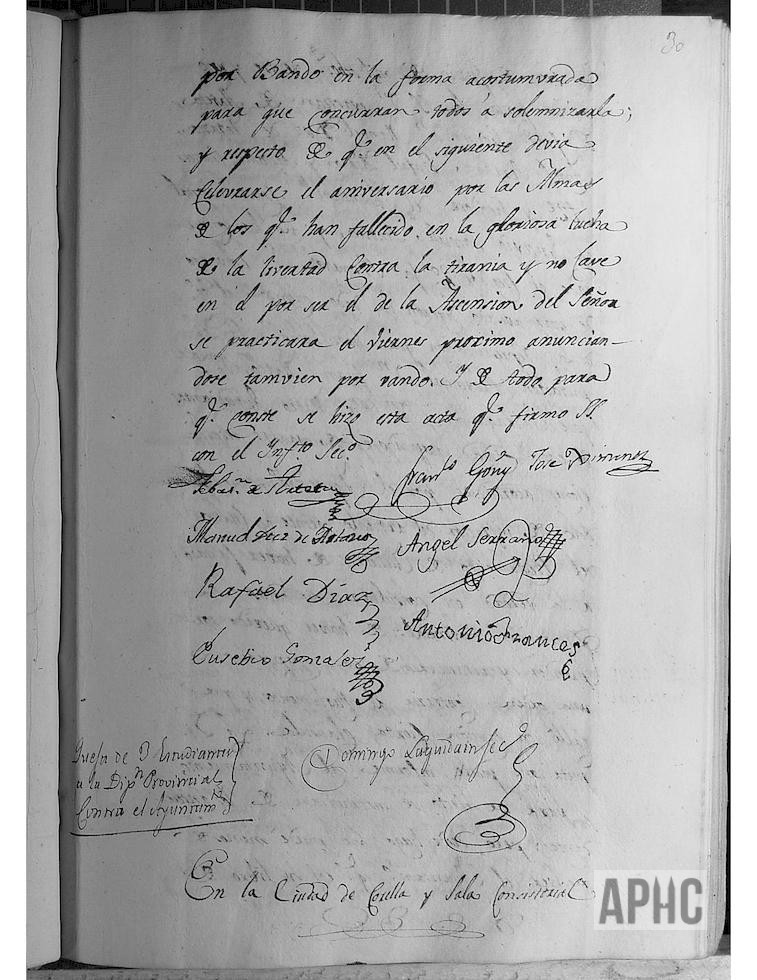 30
por Bando en la forma acostumvrada
para que concurran todos a solemnizarla;
y respecto de q.e en el siguiente devia
Celevrarse el aniversario por las Almas
de los q.e han fallecido en la gloriosa lucha
de la livertad contra la tirania y no cave
en el por ser el de la Ascension del Señor
se practicara el Viernes proximo anuncian-
dose tamvien por vando. Y de todo para
q.e conste se hizo esta acta q.e firmo SS.
con el Ynf.to Sec.o
Fran.co Goñy Jose
Sebas.n de
Manuel de Antonio
Angel Serrano
Rafael Díaz
Antonio Frances
Eusebio Gonzalez
Domingo Laquidain Sec.o
Queja de 3 Estudiantes
a la Dip.n Provincial
Contra el Ayuntam.to
En la Ciudad de Corella y Sala Consistorial
APHC